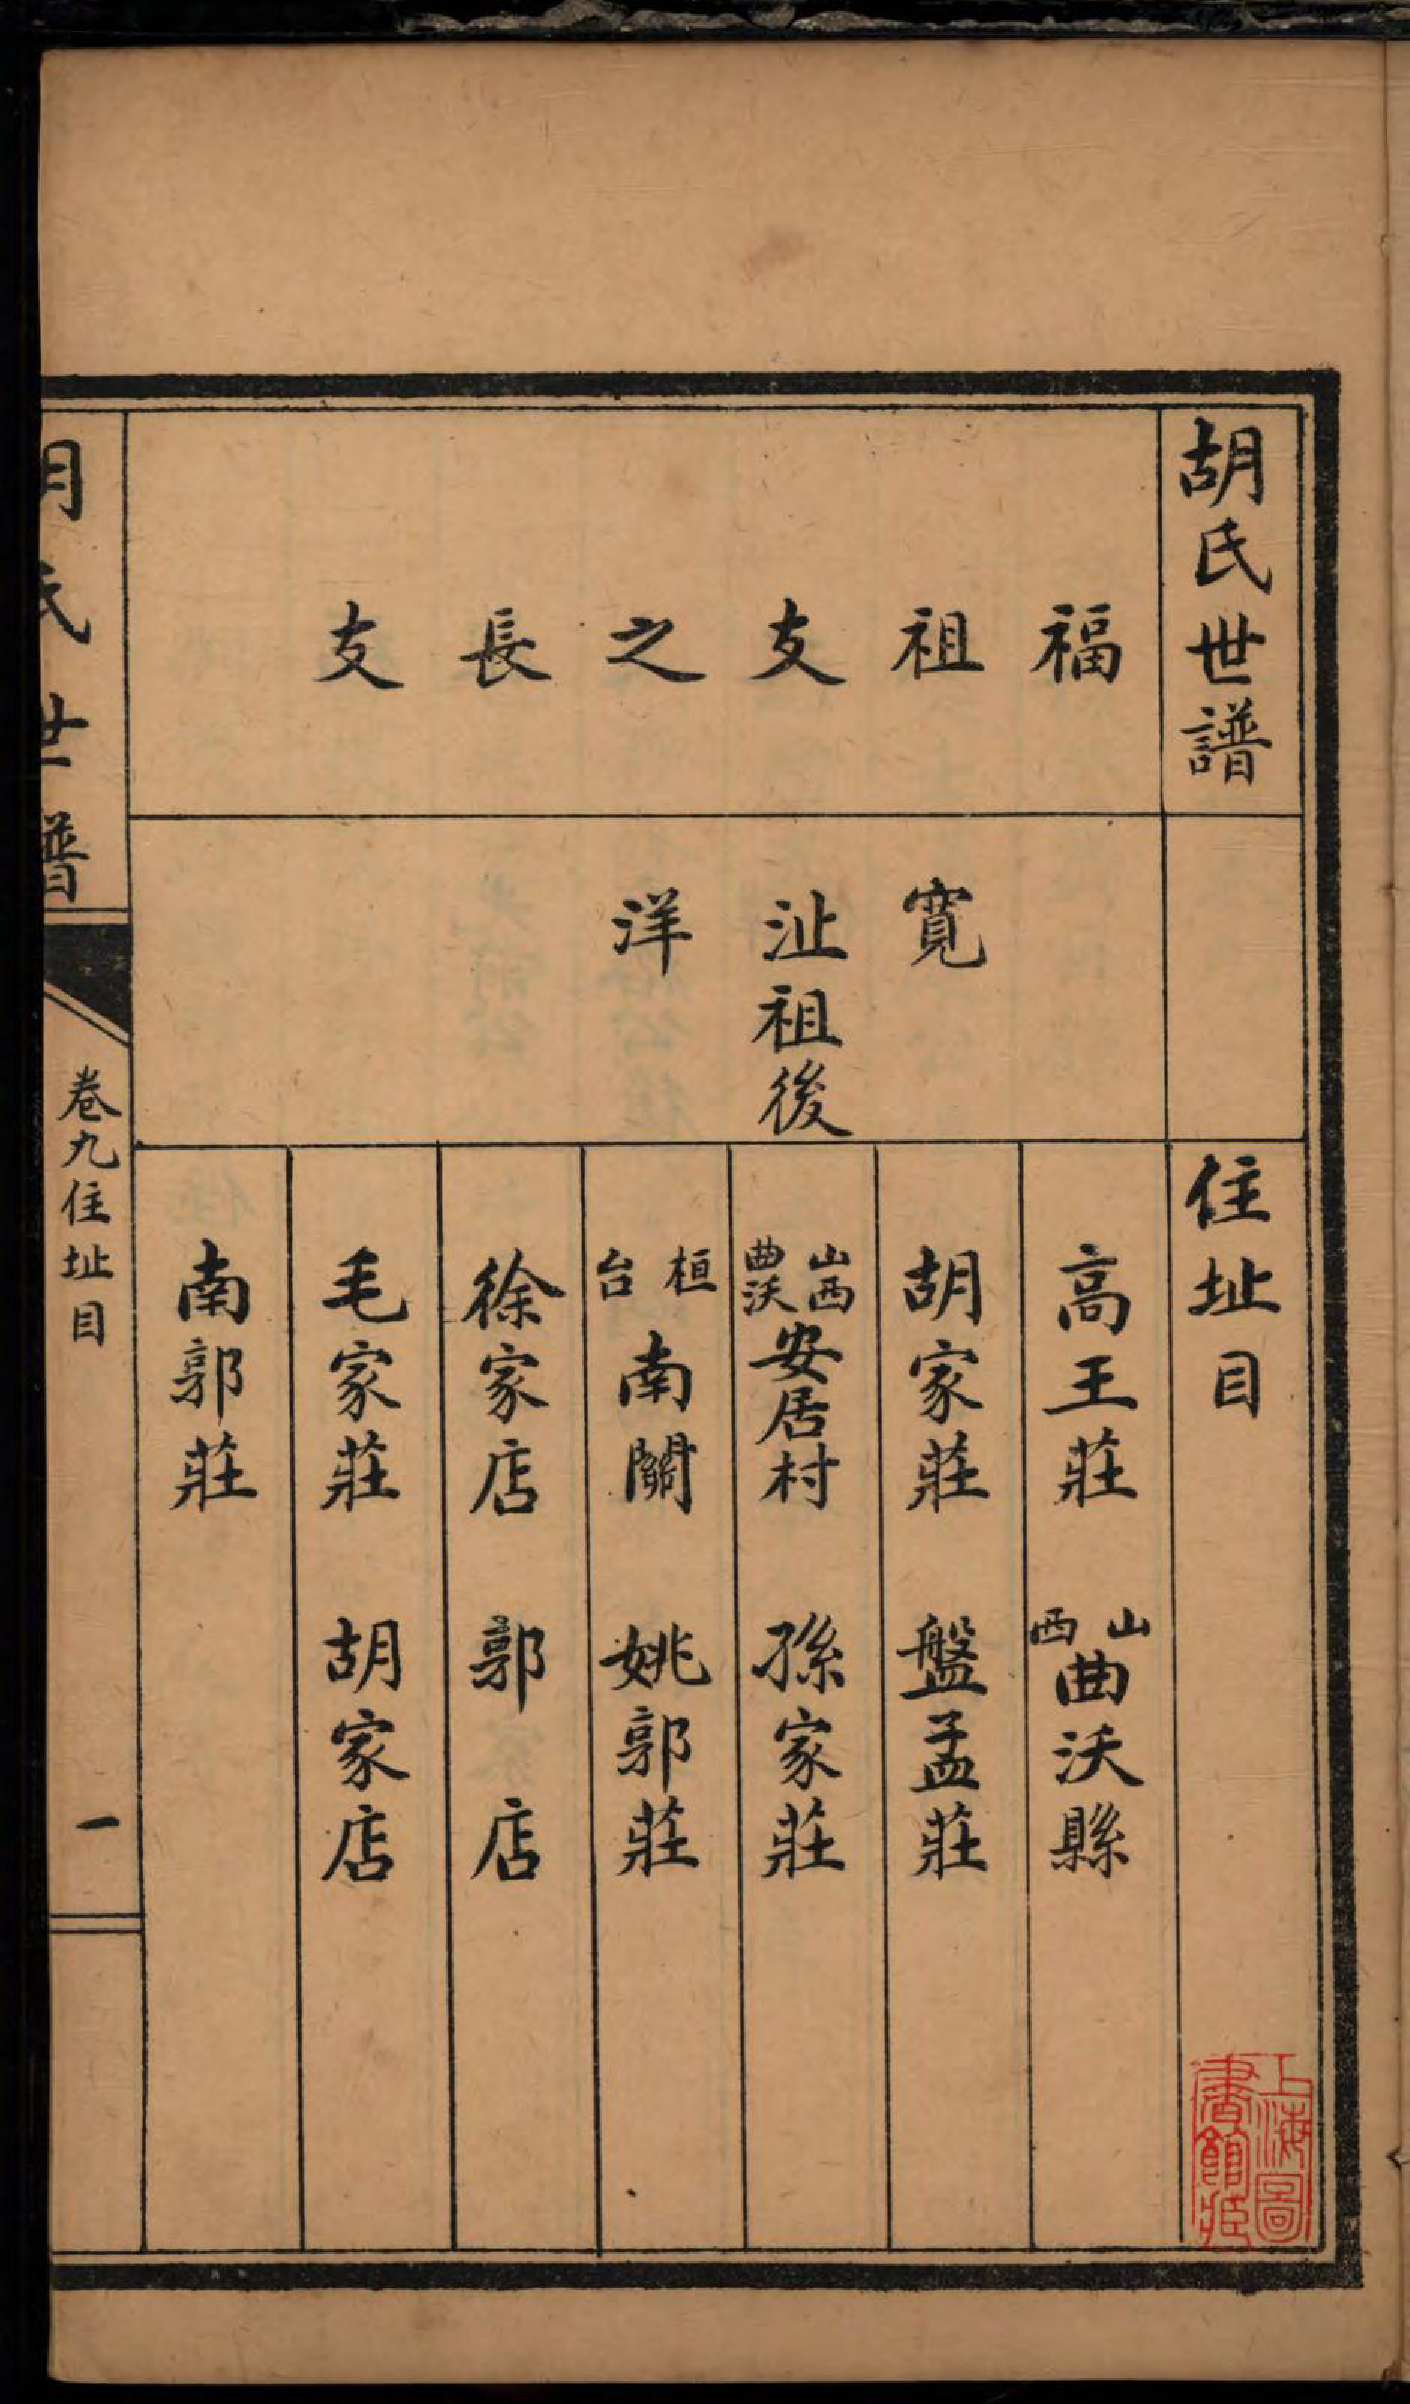 胡氏世譜
住址目
福祖支之長支
寬
沚祖後
洋
高王莊
山西曲沃縣
胡家莊
盤孟莊
山西曲沃安居村
孫家莊
桓台南關
姚郭莊
徐家店
郭店
毛家莊
胡家店
南郭莊
胡氏世譜
卷九住址目
一
上海圖書館藏